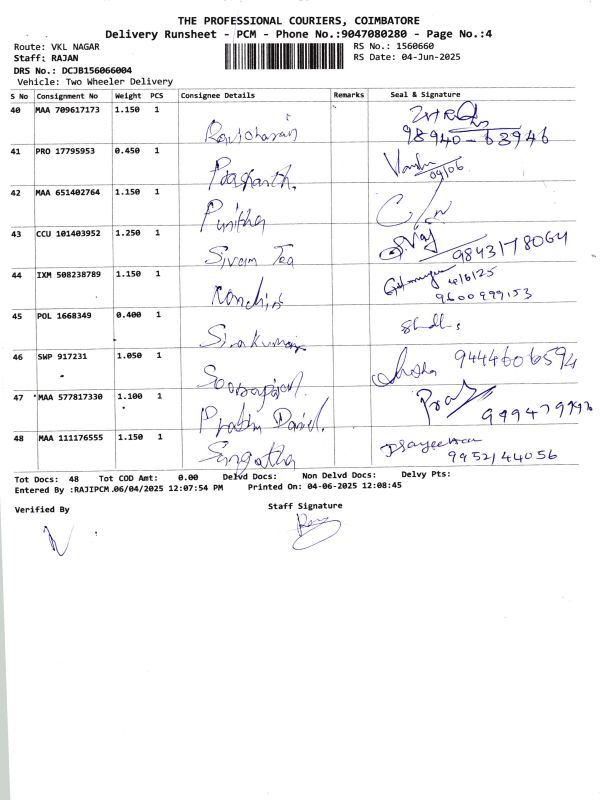 THE PROFESSIONAL COURIERS, COIMBATORE
Delivery Runsheet - PCM - Phone No.:9047080280 - Page No.:4
Route: VKL NAGAR
RS No.: 1560660
Staff: RAJAN
RS Date: 04-Jun-2025
DRS No.: DCJB156066004
Vehicle: Two Wheeler Delivery
S No Consignment No Weight PCS Consignee Details Remarks Seal & Signature
40 MAA 709617173 1.150 1 Ravicharan
98940-63946
41 PRO 17795953 0.450 1 Prashanth.
04/06
42 MAA 651402764 1.150 1 Punitha
43 CCU 101403952 1.250 1 Sivam Tea 9843178064
44 IXM 508238789 1.150 1 4/6/25
9600999153
45 POL 1668349 0.400 1 Sivakumar
46 SWP 917231 1.050 1 9444606594
47 MAA 577817330 1.100 1 Daniel.
48 MAA 111176555 1.150 1
9952144056
Tot Docs: 48 Tot COD Amt: 0.00 Delvd Docs: Non Delvd Docs: Delvy Pts:
Entered By :RAJIPCM.06/04/2025 12:07:54 PM Printed On: 04-06-2025 12:08:45
Verified By
Staff Signature